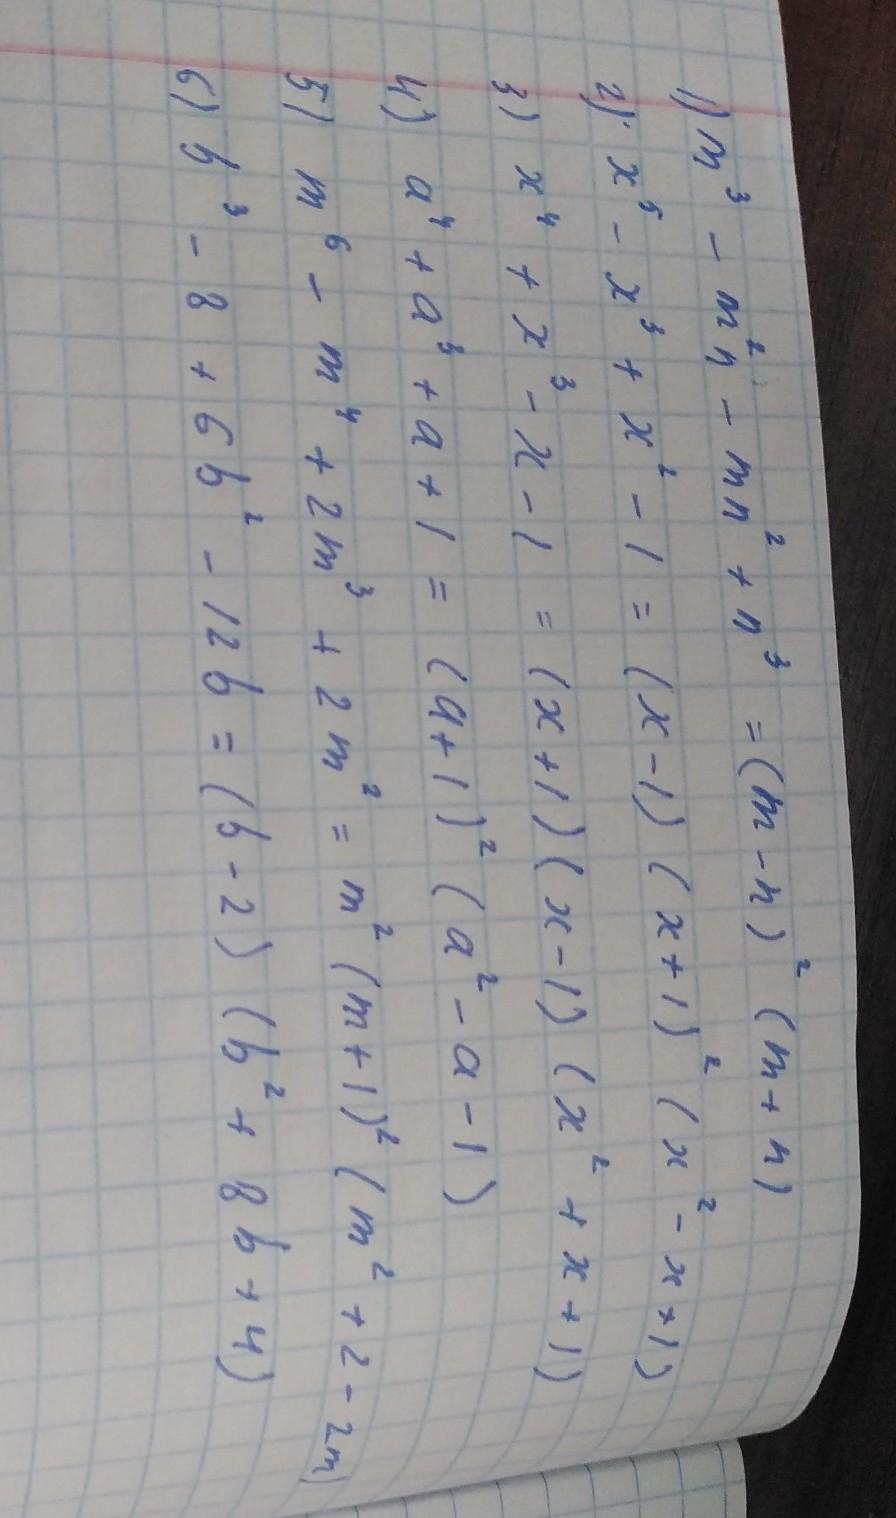 1) m³ - m²n - mn² + n³ = (m - n)² (m + n)
2) x⁵ - x³ + x² - 1 = (x - 1) (x + 1)² (x² - x + 1)
3) x⁴ + x³ - x - 1 = (x + 1) (x - 1) (x² + x + 1)
4) a⁴ + a³ + a + 1 = (a + 1)² (a² - a - 1)
5) m⁶ - m⁴ + 2m³ + 2m² = m² (m + 1)² (m² + 2 - 2m)
6) b³ - 8 + 6b² - 12b = (b - 2) (b² + 8b + 4)